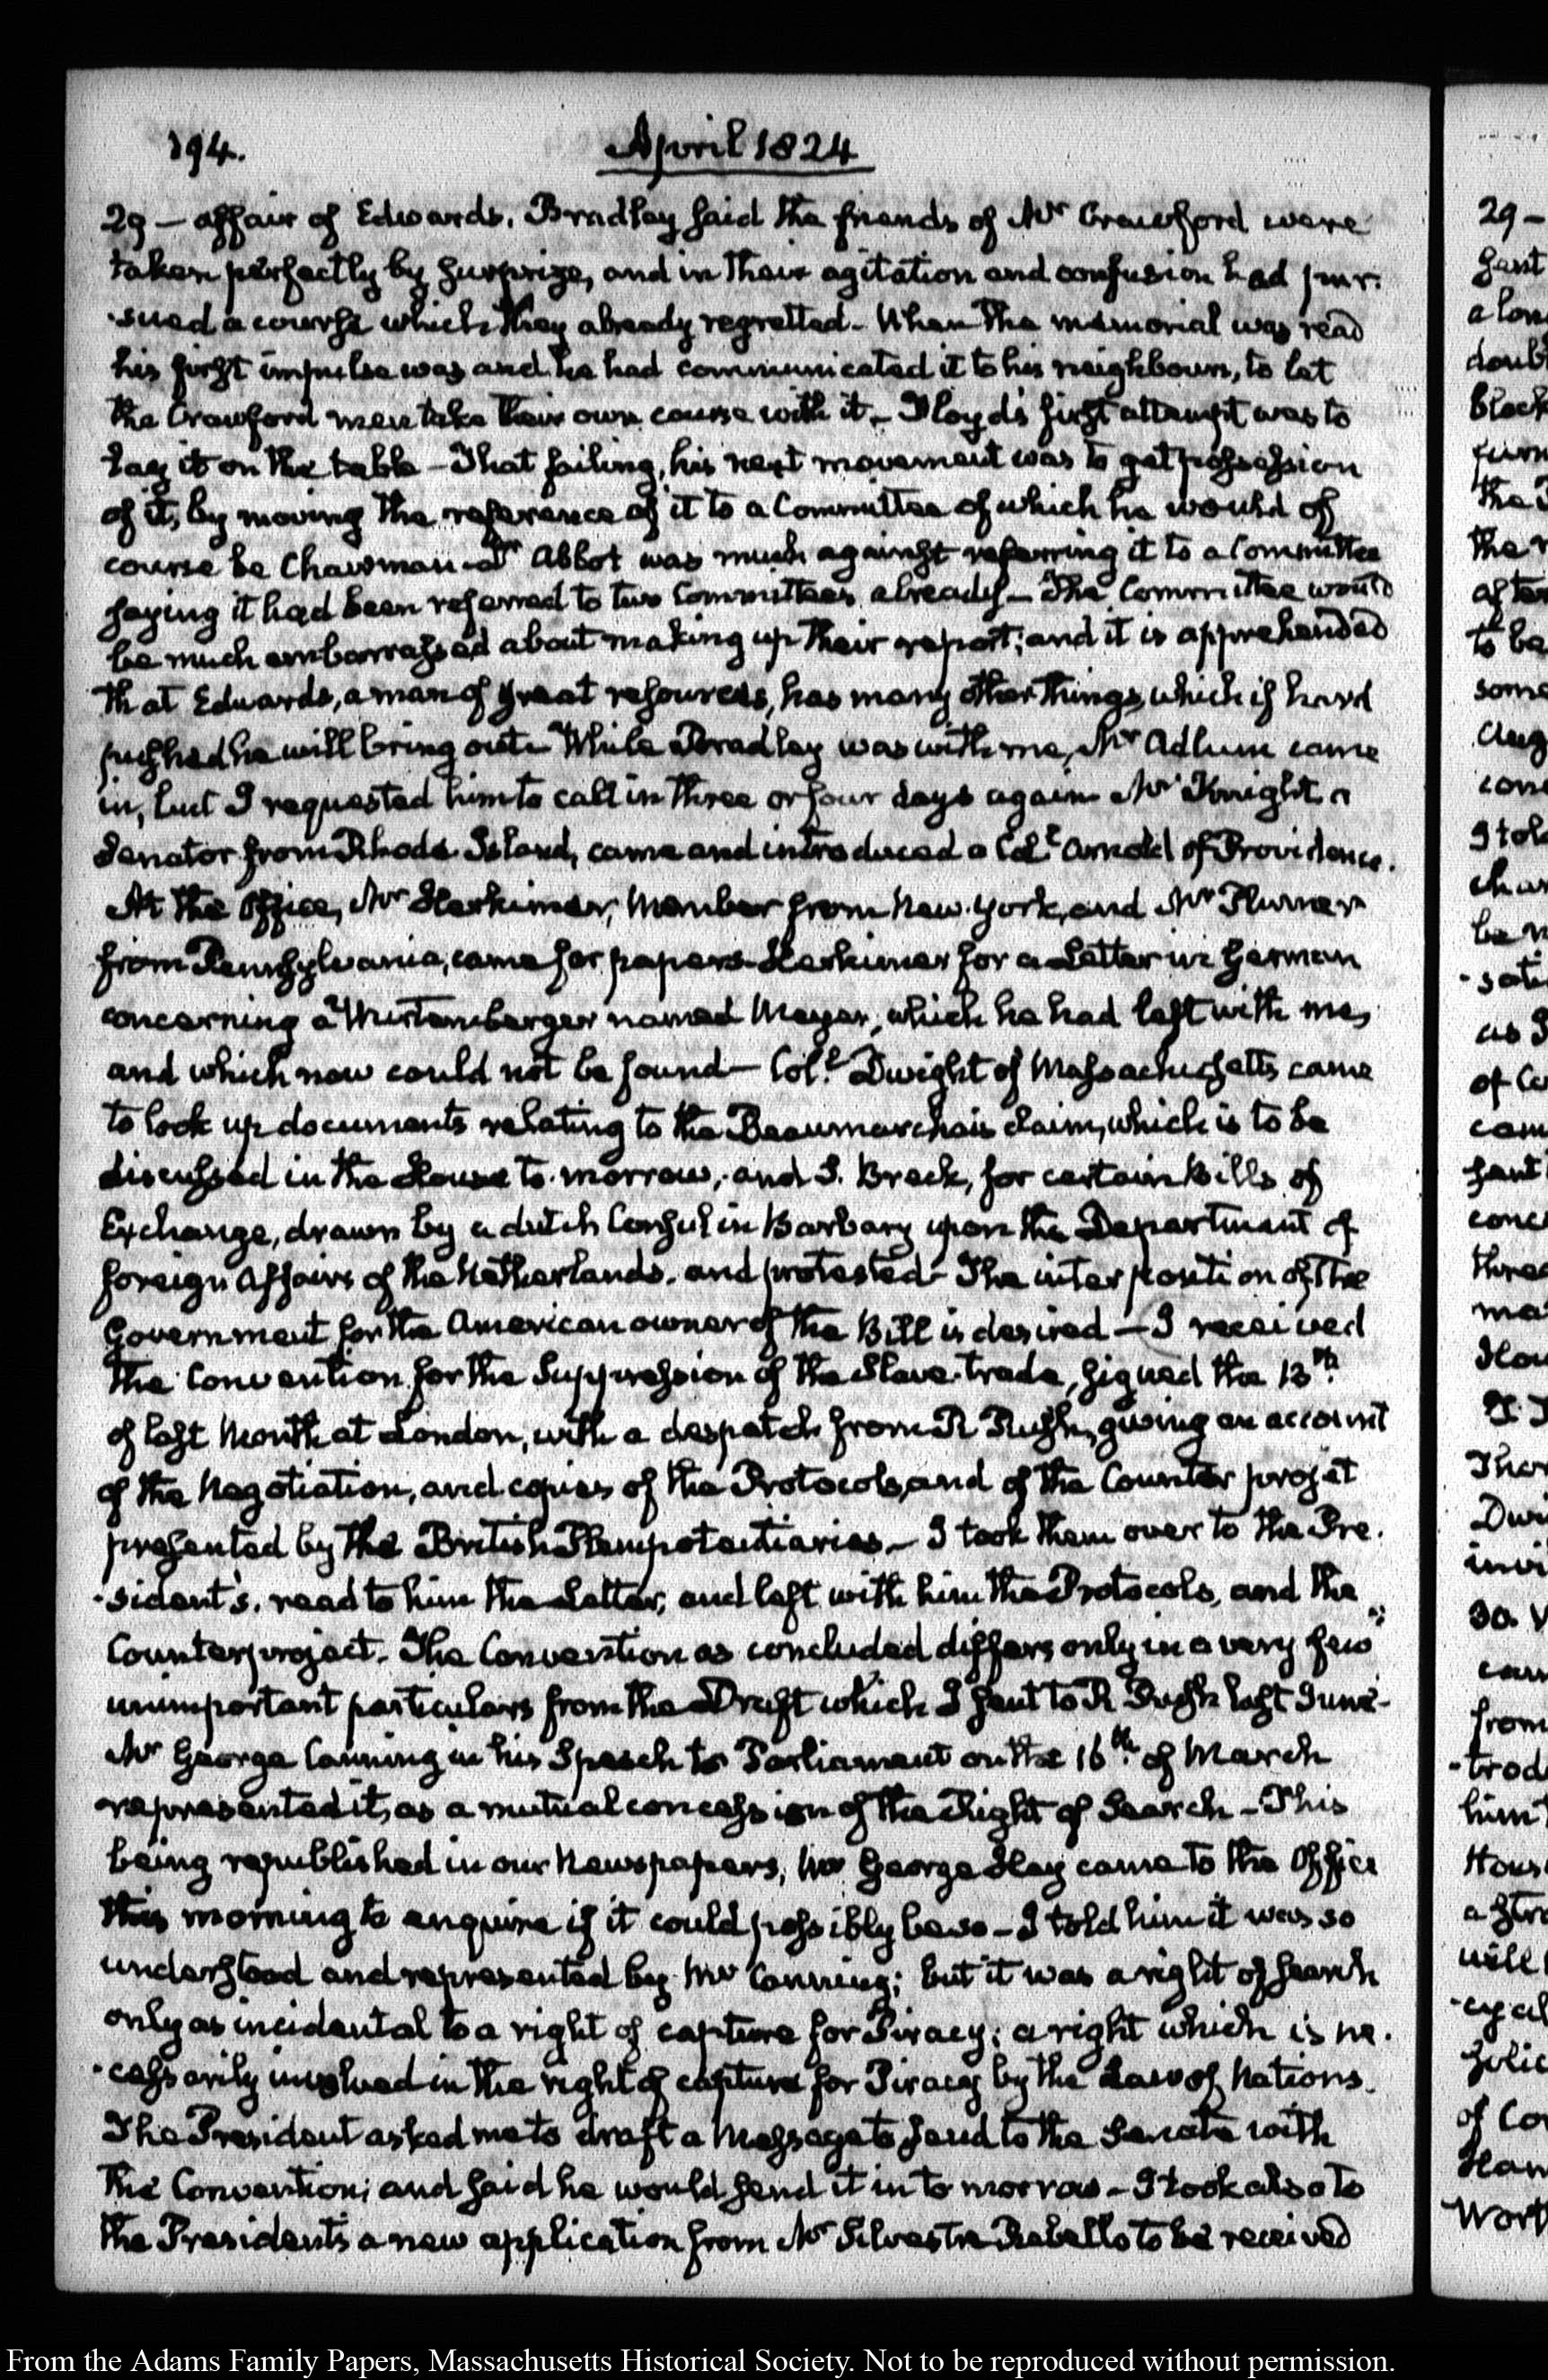 194.
April 1824
29 — affair of Edwards. Bradley said the friends of Mr Crawford were
taken perfectly by surprize, and in their agitation and confusion had pur-
-sued a course which they already regretted. When the memorial was read
his first impulse was and he had communicated it to his neighbours, to let
the Crawford men take their own course with it — Floyd's first attempt was to
lay it on the table — That failing, his next movement was to get possession
of it, by moving the reference of it to a Committee of which he would of
course be Chairman — Abbot was much against referring it to a Committee
saying it had been referred to two Committees already — The Committee would
be much embarrassed about making up their report; and it is apprehended
that Edwards, a man of great resources, has many other things, which if hard
pushed he will bring out. While Bradley was with me, Mr Adlum came
in, but I requested him to call in three or four days again. Mr Knight a
Senator from Rhode Island, came and introduced a Coll. Arnold of Providence.
At the Office, Mr Herkimer, Member from New-York, and Mr Plumer
from Pennsylvania, came for papers. Herkimer for a Letter in German
concerning a Wurtemberger named Meyer, which he had left with me,
and which now could not be found — Coll. Dwight of Massachusetts came
to look up documents relating to the Beaumarchais claim, which is to be
discussed in the House to-morrow; and S. Breck, for certain Bills of
Exchange, drawn by a dutch Consul in Barbary upon the Department of
foreign Affairs of the Netherlands, and protested — The interposition of the
Government for the American owner of the Bill is desired — I received
the Convention for the Suppression of the Slave-trade, signed the 13th.
of last Month at London, with a despatch from R Rush, giving an account
of the Negotiation, and copies of the Protocols, and of the Counter projet
presented by the British Plenipotentiaries — I took them over to the Pre-
-sident's. read to him the Letter, and left with him the Protocols, and the
Counterproject. The Convention as concluded differs only in a very few
unimportant particulars from the Draft which I sent to R Rush last June —
Mr George Canning in his Speech to Parliament on the 16th. of March
represented it, as a mutual concession of the Right of Search — This
being republished in our Newspapers, Mr George Hay came to the Office
this morning to enquire if it could possibly be so — I told him it was so
understood and represented by Mr Canning; but it was a right of search
only as incidental to a right of capture for Piracy; a right which is ne-
-cessarily involved in the right of capture for Piracy by the Law of Nations.
The President asked me to draft a Message to send to the Senate with
the Convention; and said he would send it in to morrow — I took also to
the President's a new application from Mr Silvestre Rebello to be received
29 —
From the Adams Family Papers, Massachusetts Historical Society. Not to be reproduced without permission.